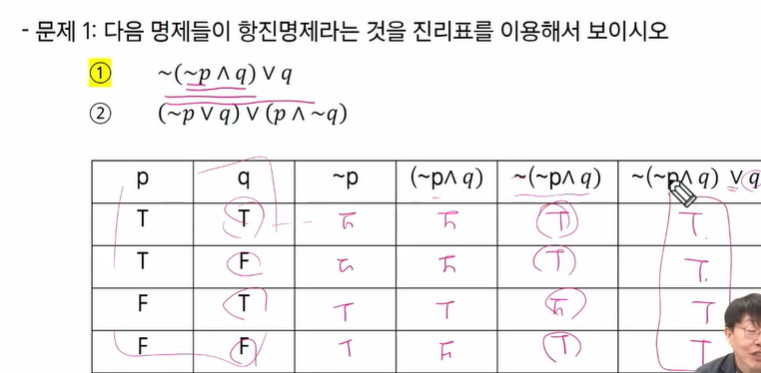 - 문제 1: 다음 명제들이 항진명제라는 것을 진리표를 이용해서 보이시오
① ~(~p ∧ q) ∨ q
② (~p ∨ q) ∨ (p ∧ ~q)
p q ~p (~p∧ q) ~(~p∧ q) ~(~p∧ q) ∨ q
T T F F T T
T F F F T T
F T T T F T
F F T F T T